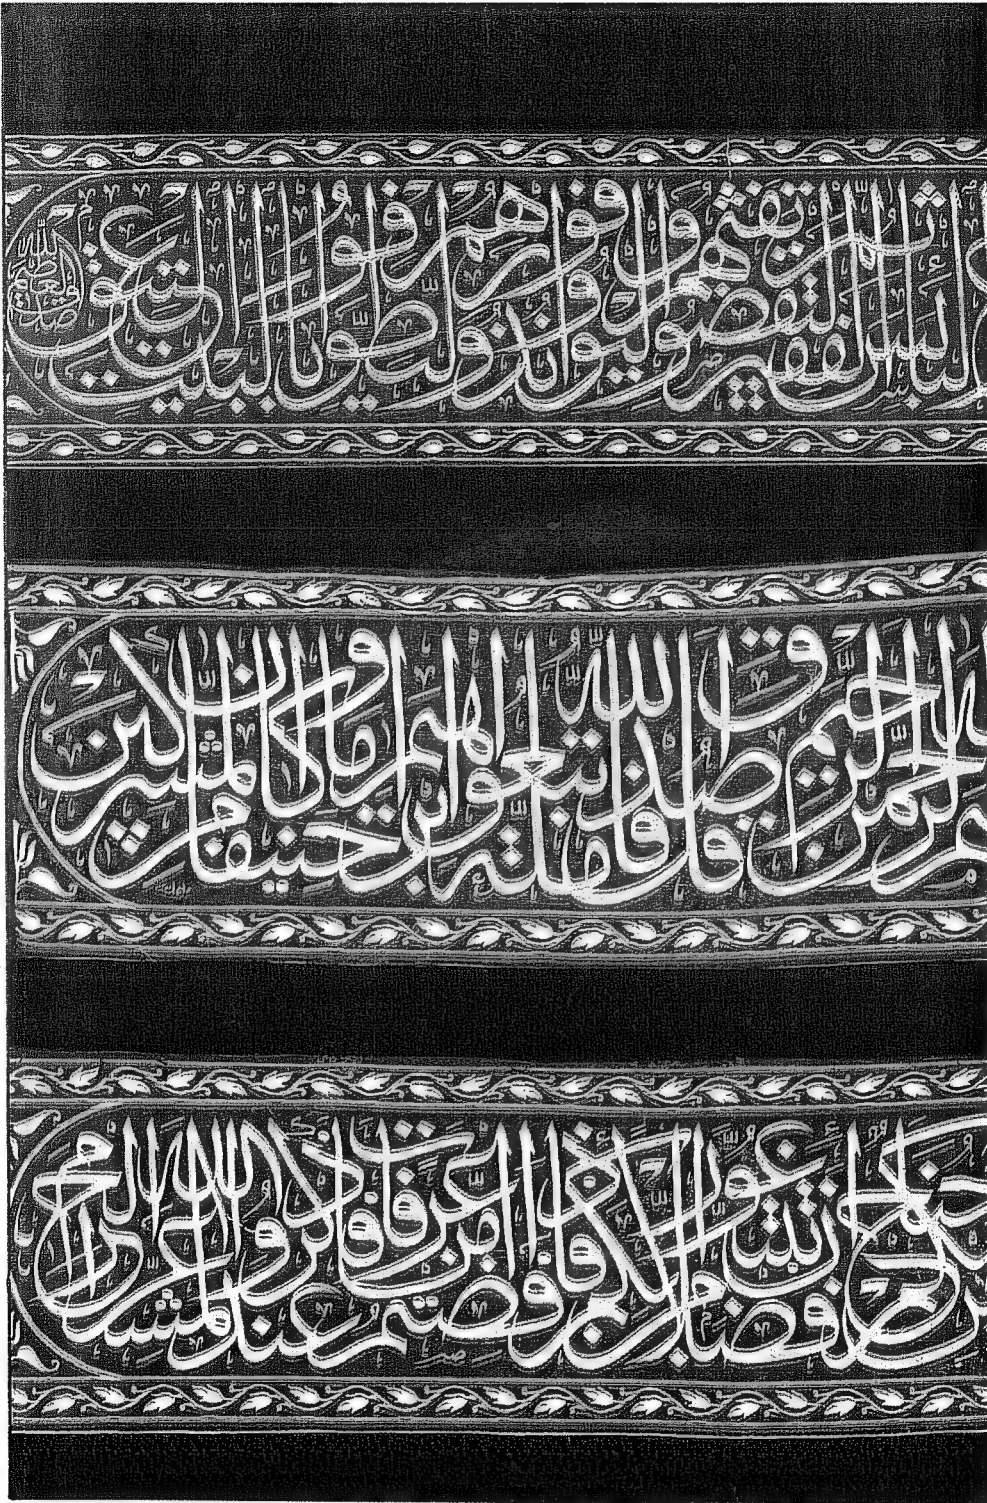 البائس الفقير ثم ليقضوا تفثهم وليوفوا نذورهم وليطوفوا بالبيت العتيق صدق الله العظيم
الرحمن الرحيم قل صدق الله فاتبعوا ملة ابراهيم حنيفا وما كان من المشركين
جناح ان تبتغوا فضلا من ربكم فاذا افضتم من عرفات فاذكروا الله عند المشعر الحرام